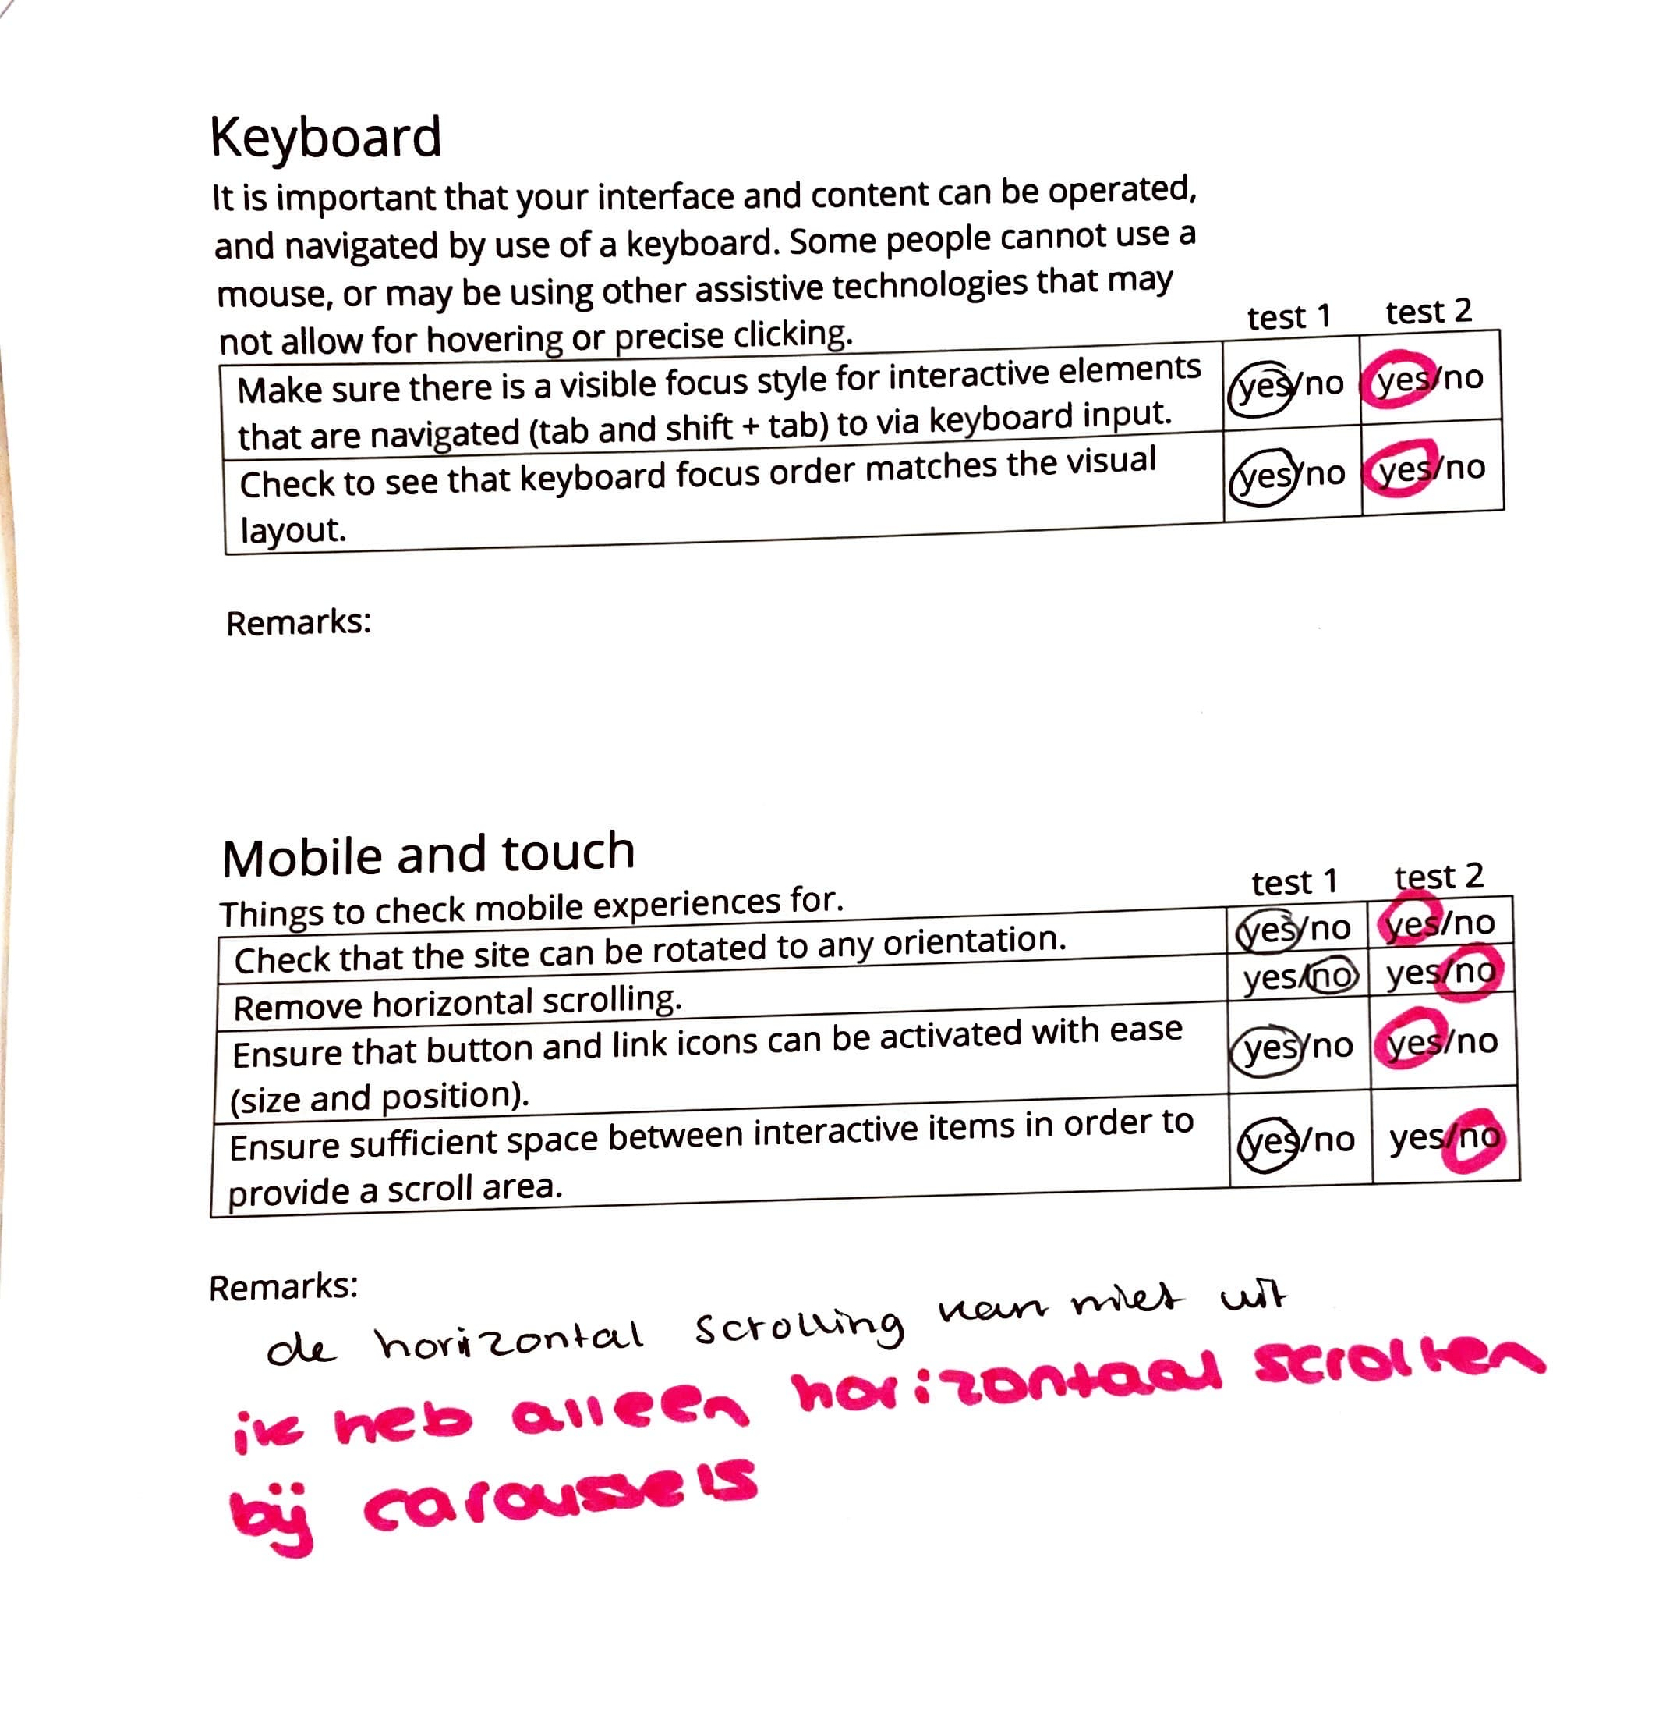 Keyboard
It is important that your interface and content can be operated,
and navigated by use of a keyboard. Some people cannot use a
mouse, or may be using other assistive technologies that may
not allow for hovering or precise clicking.
test 1 test 2
Make sure there is a visible focus style for interactive elements
that are navigated (tab and shift + tab) to via keyboard input.
yes/no yes/no
Check to see that keyboard focus order matches the visual
layout.
yes/no yes/no
Remarks:
Mobile and touch
Things to check mobile experiences for.
test 1 test 2
Check that the site can be rotated to any orientation. yes/no yes/no
Remove horizontal scrolling. yes/no yes/no
Ensure that button and link icons can be activated with ease
(size and position).
yes/no yes/no
Ensure sufficient space between interactive items in order to
provide a scroll area.
yes/no yes/no
Remarks:
de horizontal scrolling kan niet uit
ik heb alleen horizontaal scrollen
bij caroussels